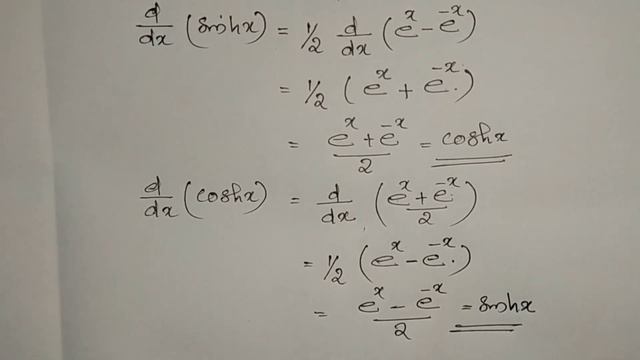 d/dx (sinhx) = 1/2 d/dx (e^x - e^-x)
= 1/2 (e^x + e^-x)
= (e^x + e^-x)/2 = coshx
d/dx (coshx) = d/dx ((e^x + e^-x)/2)
= 1/2 (e^x - e^-x)
= (e^x - e^-x)/2 = sinhx